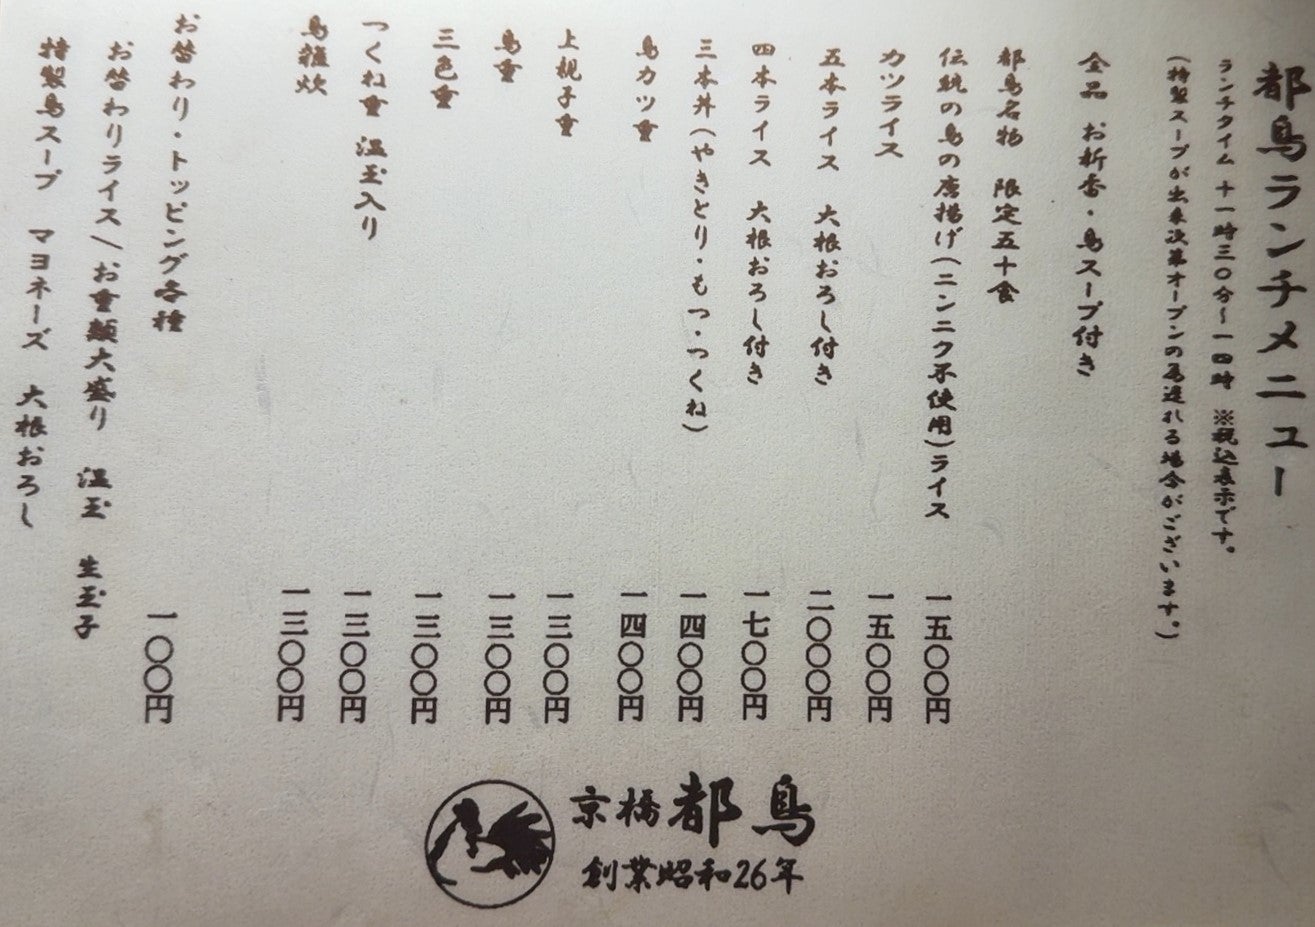 都鳥ランチメニュー
ランチタイム 十一時三〇分～一四時 ※税込表示です。
(特製スープが出来次第オープンの為遅れる場合がございます。)
全品 お新香・鳥スープ付き
都鳥名物 限定五十食
伝統の鳥の唐揚げ(ニンニク不使用)ライス 一五〇〇円
カツライス 一五〇〇円
五本ライス 大根おろし付き 二〇〇〇円
四本ライス 大根おろし付き 一七〇〇円
三本丼(やきとり・もつ・つくね) 一四〇〇円
鳥カツ重 一四〇〇円
上親子重 一三〇〇円
鳥重 一三〇〇円
三色重 一三〇〇円
つくね重 温玉入り 一三〇〇円
鳥雑炊 一三〇〇円
お替わり・トッピング各種 一〇〇円
お替わりライス/お重類大盛り 温玉 生玉子
特製鳥スープ マヨネーズ 大根おろし
京橋 都鳥
創業昭和26年